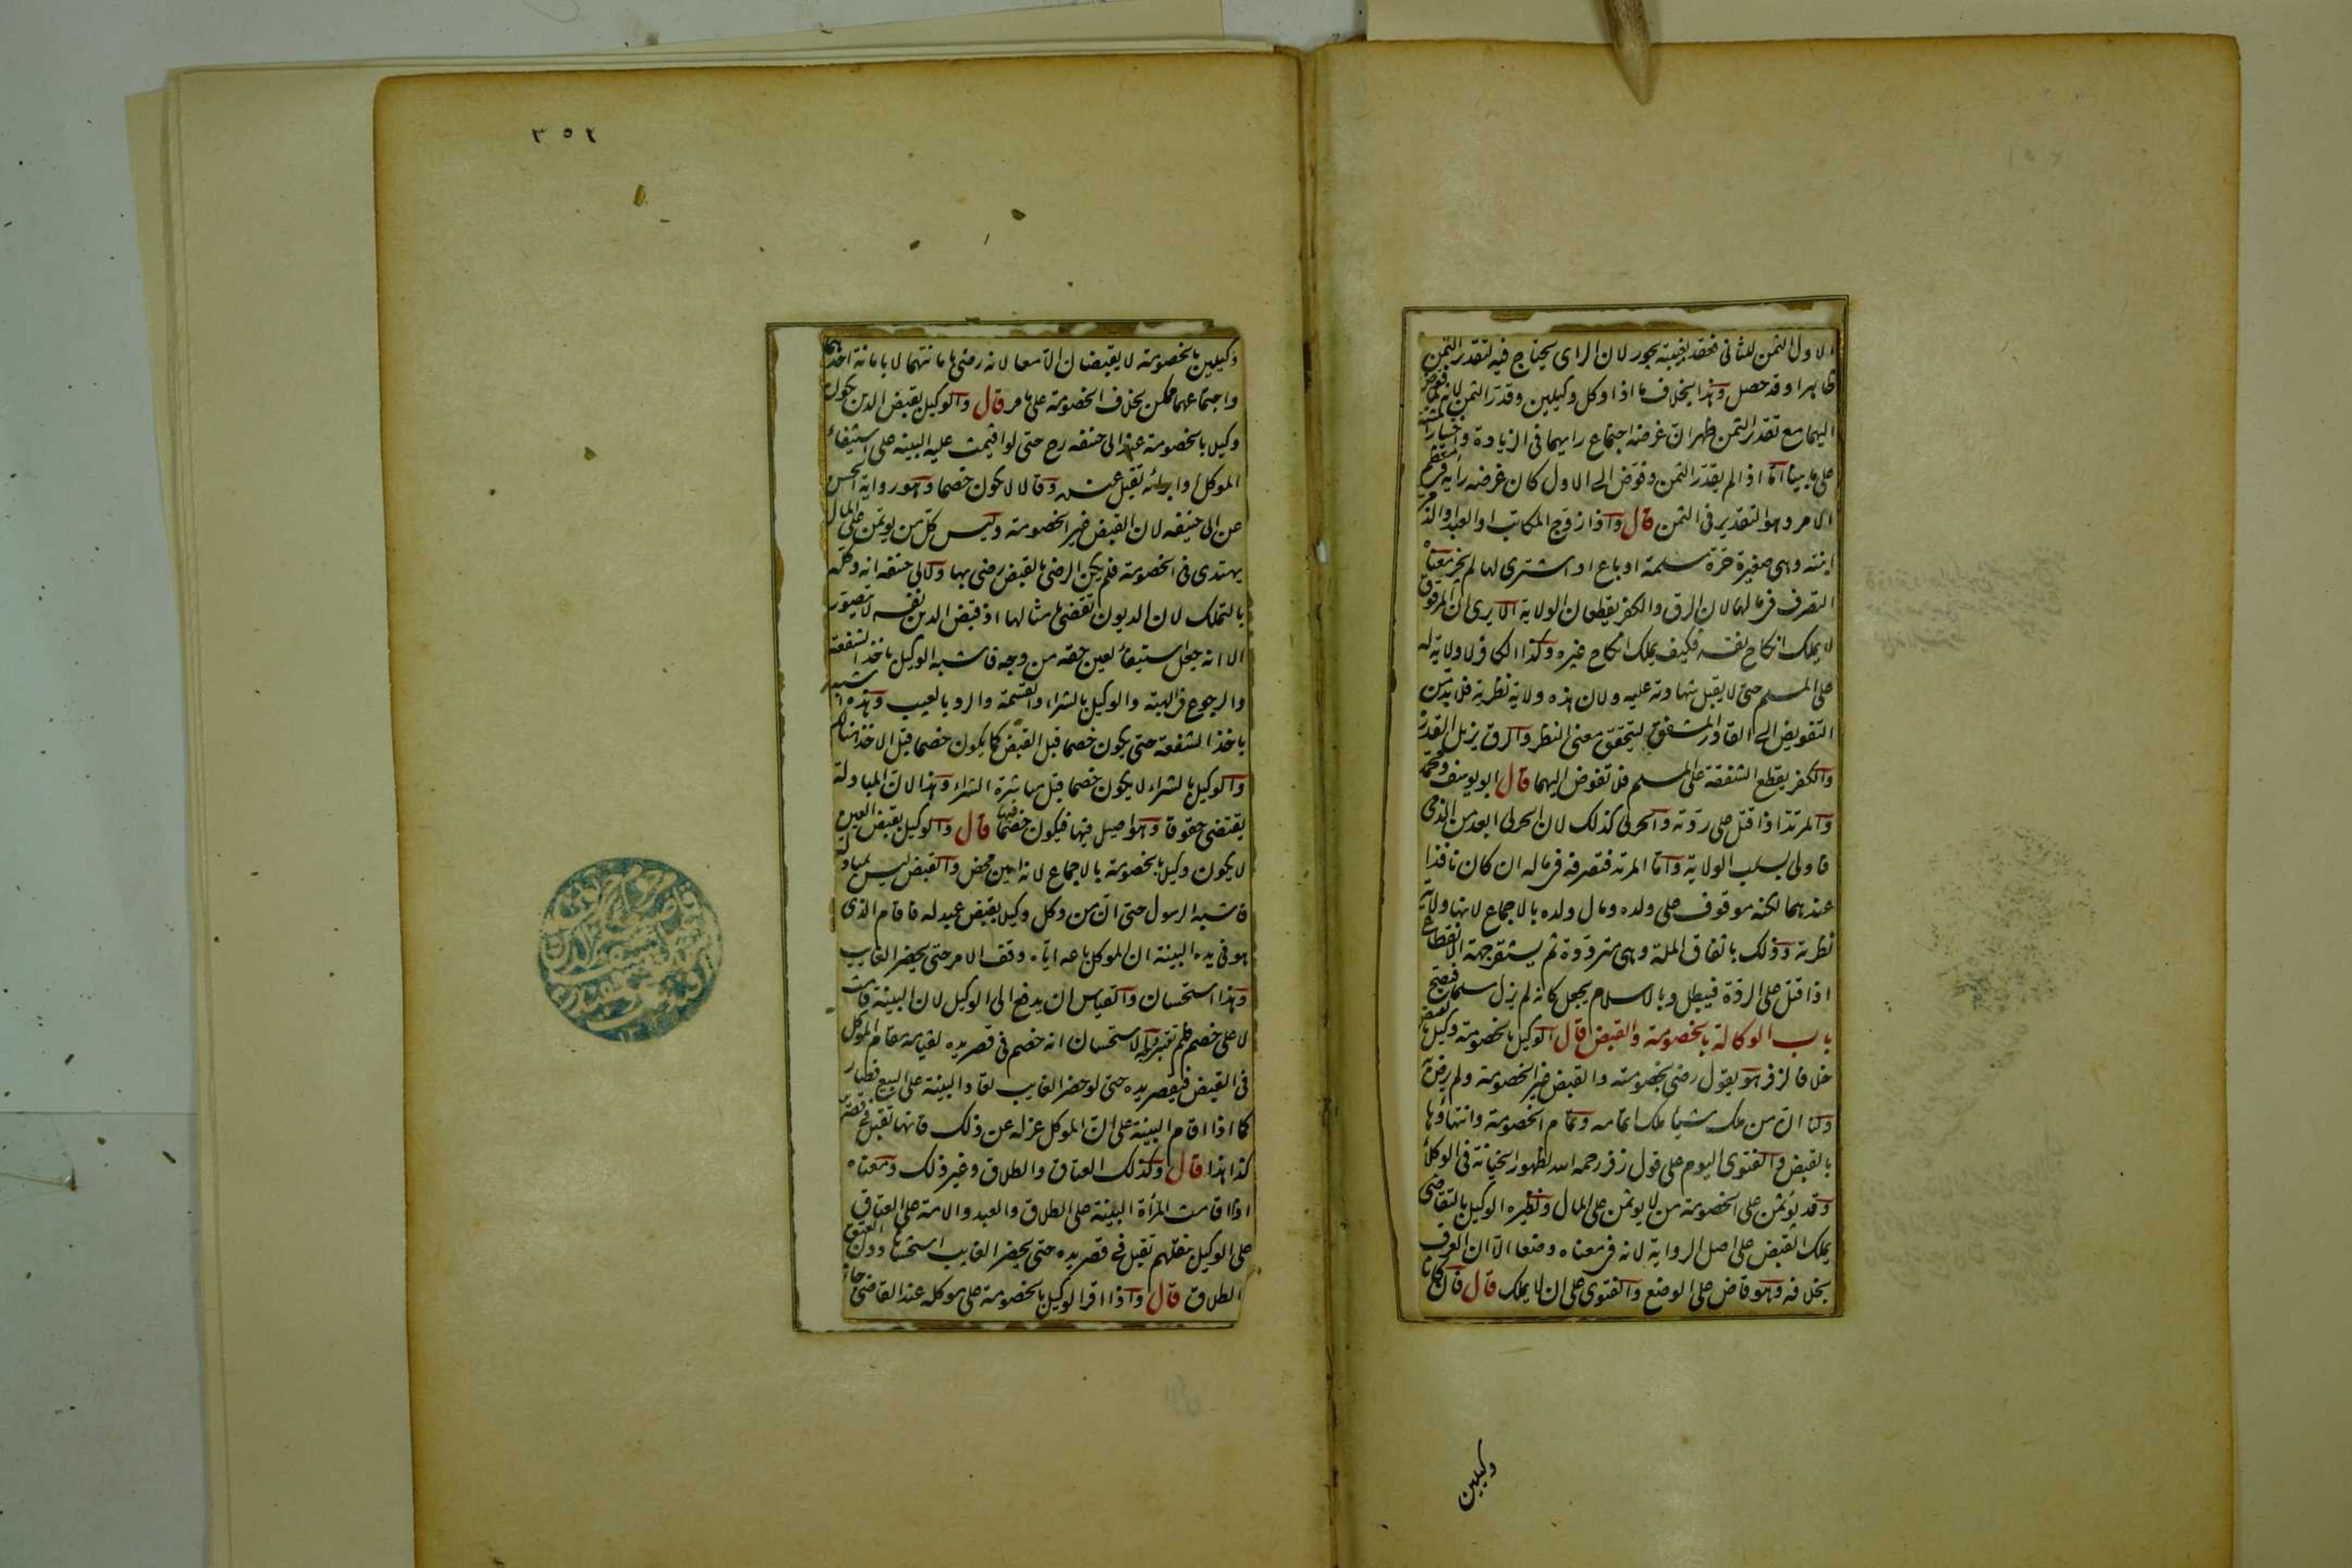 الاول الثمن للثانى فعقد بغيبته يجوز لان الراى يحتاج فيه لتقدير الثمن
ظاهرا وقد حصل وهذا بخلاف ما اذا وكل وكيلين وقدر الثمن لانه لما فوض
اليهما مع تقدير الثمن ظهر ان غرضه اجتماع رايهما فى الزيادة واختيار المشترى
على ما بينا اما اذا لم يقدر الثمن وفوض الى الاول كان غرضه رأيه فى معظم
الامر وهو التقدير فى الثمن قال واذا زوج المكاتب او العبد او الذمى
ابنته وهى صغيرة حرة مسلمة او باع او اشترى لها لم يجز معناه
التصرف فى مالها لان الرق والكفر يقطعان الولاية الا يرى ان المرقوق
لا يملك انكاح نفسه فكيف يملك انكاح غيره وكذا الكافر لا ولاية له
على المسلم حتى لا يقبل شهادته عليه ولان هذه ولاية نظرية فلا بد من
التفويض الى القادر المشفق ليتحقق معنى النظر والرق يزيل القدرة
والكفر يقطع الشفقة على المسلم فلا تفوض اليهما قال ابو يوسف ومحمد
والمرتد اذا قتل على ردته والحربى كذلك لان الحربى ابعد من الذمى
فاولى بسلب الولاية واما المرتد فتصرفه فى ماله ان كان نافذا
عندهما لكنه موقوف على ولده ومال ولده بالاجماع لانها ولاية
نظرية وذلك باتفاق الملة وهى مترددة ثم يستقر جهة الانقطاع
اذا قتل على الردة فيبطل وبالاسلام يجعل كانه لم يزل مسلما فيصح
باب الوكالة بالخصومة والقبض قال الوكيل بالخصومة وكيل بالقبض
خلافا لزفر هو يقول رضى بخصومته والقبض غير الخصومة ولم يرض به
ولنا ان من ملك شيئا ملك اتمامه وتمام الخصومة وانتهاؤها
بالقبض والفتوى اليوم على قول زفر رحمه الله لظهور الخيانة فى الوكلاء
وقد يؤتمن على الخصومة من لا يؤتمن على المال ونظيره الوكيل بالتقاضى
يملك القبض على اصل الرواية لانه فى معناه وضعا الا ان العرف
بخلافه وهو قاض على الوضع والفتوى على ان لا يملك قال فان كانا
وكيلين
٣٥٢
وكيلين بالخصومة لا يقبضان الا معا لانه رضى بامانتهما لا بامانة احدهما
واجتماعهما ممكن بخلاف الخصومة على ما مر قال والوكيل بقبض الدين يكون
وكيلا بالخصومة عند ابى حنيفه رح حتى لو اقيمت عليه البينه على استيفاء
الموكل او ابرائه تقبل عنده وقالا لا يكون خصما وهو رواية الحسن
عن ابى حنيفه لان القبض غير الخصومة وليس كل من يؤتمن على المال
يهتدى فى الخصومة فلم يكن الرضى بالقبض رضى بها ولابى حنيفه انه وكله
بالتملك لان الديون تقضى بامثالها اذ قبض الدين نفسه لا يتصور
الا انه جعل استيفاء لعين حقه من وجه فاشبه الوكيل باخذ الشفعة
والرجوع فى الهبة والوكيل بالشراء والقسمة والرد بالعيب وهذه اشبه
باخذ الشفعة حتى يكون خصما قبل القبض كما يكون خصما قبل الاخذ هنالك
والوكيل بالشراء لا يكون خصما قبل مباشرة الشراء وهذا لان المبادلة
يقتضى حقوقا وهو اصيل فيها فيكون خصما فيها قال والوكيل بقبض العين
لا يكون وكيلا بالخصومة بالاجماع لانه امين محض والقبض ليس بمبادلة
فاشبه الرسول حتى ان من وكل وكيلا بقبض عبد له فاقام الذى
هو فى يده البينة ان الموكل باعه اياه وقف الامر حتى يحضر الغايب
وهذا استحسان والقياس ان يدفع الى الوكيل لان البينة قامت
لا على خصم فلم تعتبر وجه الاستحسان انه خصم فى قصر يده لقيامه مقام الموكل
فى القبض فيقصر يده حتى لو حضر الغايب تعاد البينة على البيع فصار
كما اذا اقام البينة على ان الموكل عزله عن ذلك فانها تقبل فى قصر يده
كذا هذا قال وكذلك العتاق والطلاق وغير ذلك ومعناه
اذا اقامت المرأة البينة على الطلاق والعبد والامة على العتاق
على الوكيل بنقلهم تقبل فى قصر يده حتى يحضر الغايب استحسانا دون العتق
والطلاق قال واذا اقر الوكيل بالخصومة على موكله عند القاضى جاز